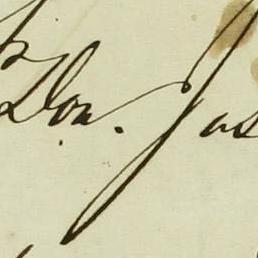 Don. Jas